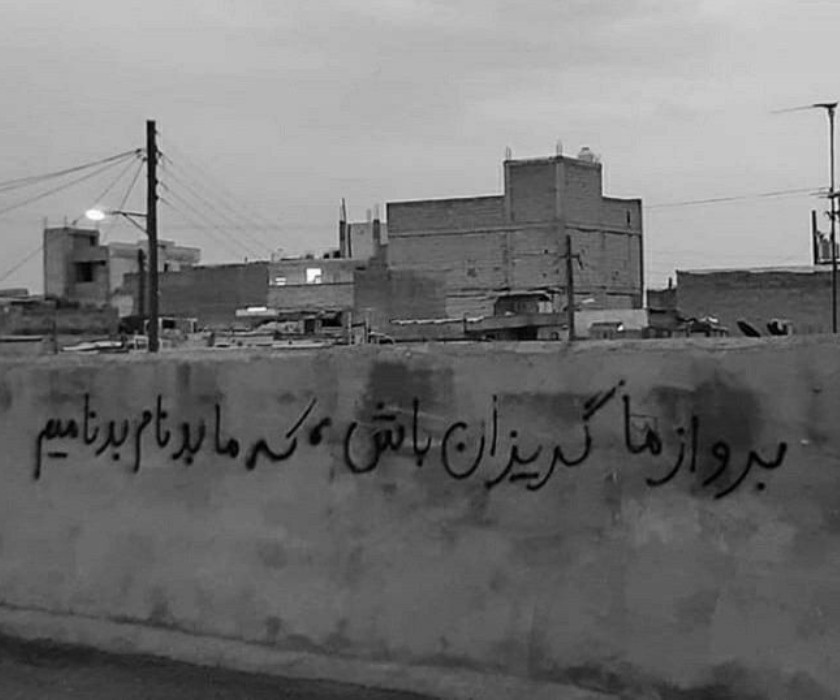 برو از ما گریزان باش، که ما بدنام بدنامیم